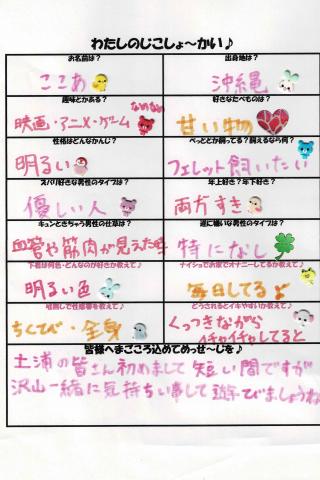 わたしのじこしょ～かい♪
お名前は？
出身地は？
ここあ
沖縄
趣味とかある？
好きなたべものは？
映画・アニメ・ゲーム
甘い物
性格はどんなかんじ？
ぺっととか飼ってる？飼えるなら何？
明るい
フェレット飼いたい
ズバリ好きな男性のタイプは？
年上好き？年下好き？
優しい人
両方すき
キュンときちゃう男性の仕草は？
逆に嫌いな男性のタイプは？
血管や筋肉が見えた時
特になし
下着は何色・どんなのが好きか教えて♪
ナイショでお家でオナニーしてるか教えて♪
明るい色
毎日してる
性感帯を教えて♪
どうされるとイキやすいか教えて♪
ちくてび・全身
くっつきながら
イチャイチャしてると
皆様へまごころ込めてめっせ～じを♪
土浦の皆さん初めまして 短い間ですが
沢山一緒に気持ちい事して遊びましょうね